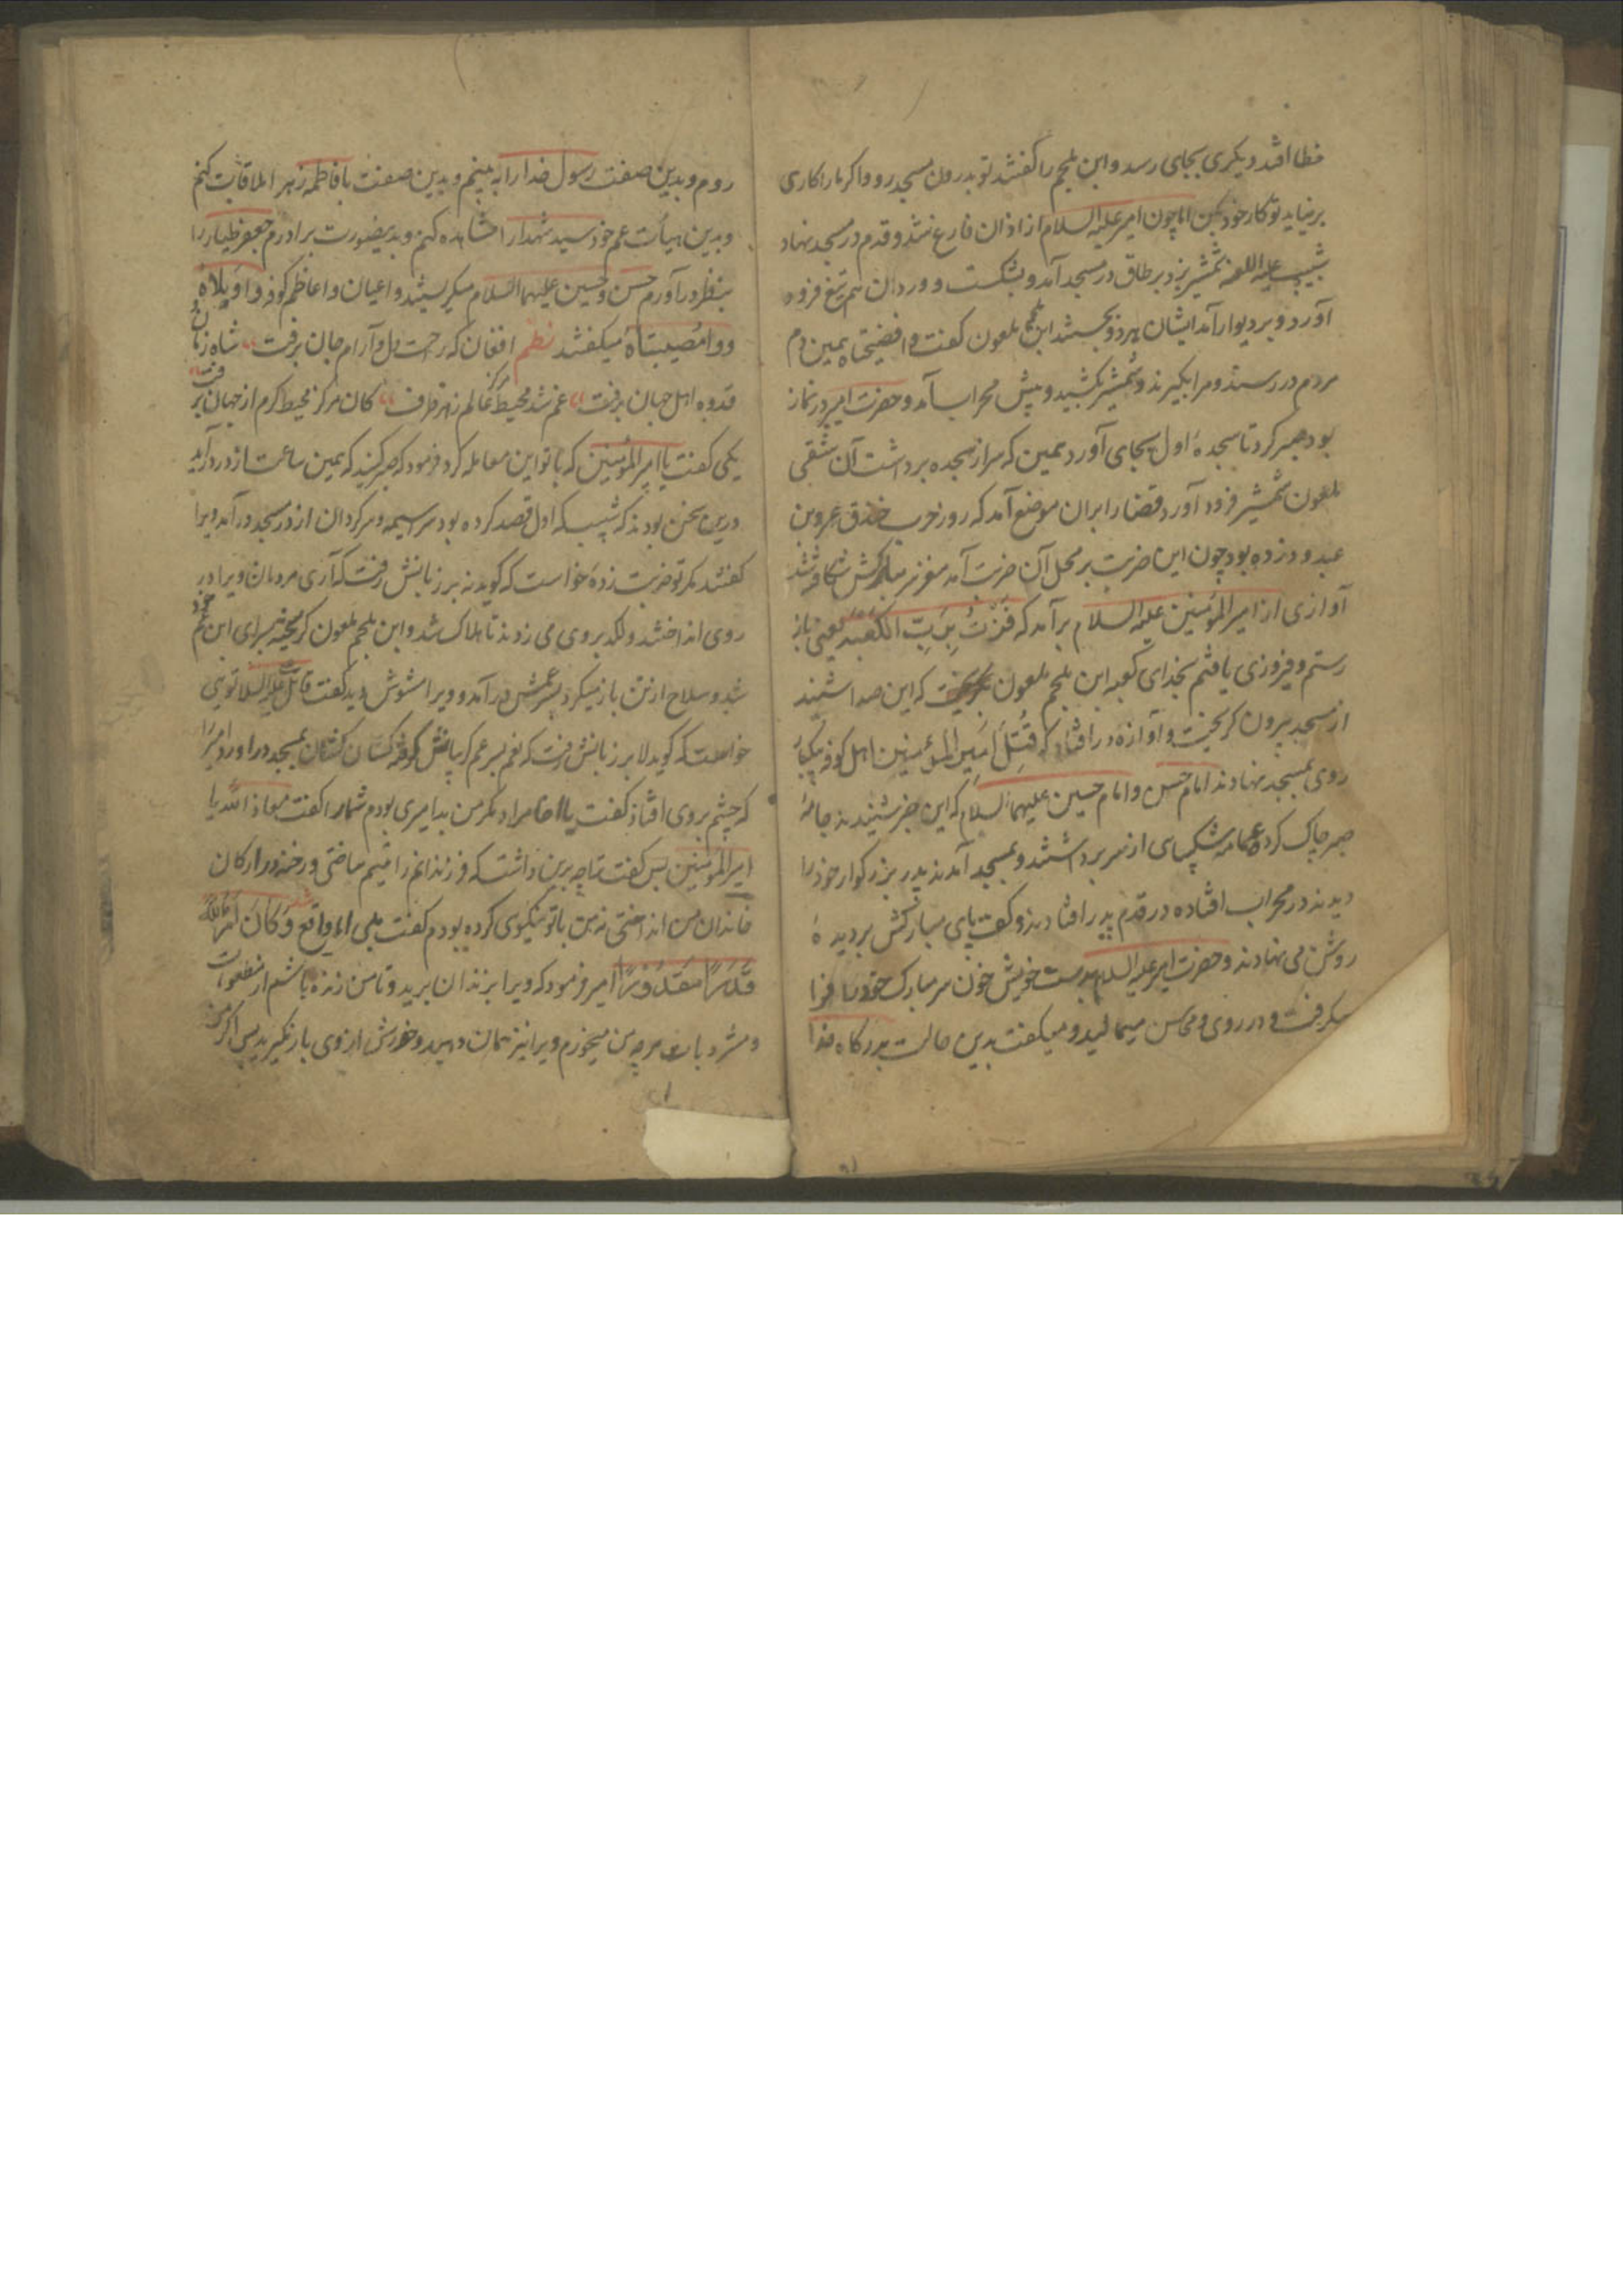 خطا افتد دیکری بجای رسد و ابن ملجم را کفتند تو بدرون مسجد رو و اکر ما را کاری
بر نیاید تو کار خود بکن اما چون امیر علیه السلام از اذان فارغ شد و قدم در مسجد نهاد
شبیب علیه اللعنه شمشیر بزد بر طاق در مسجد آمد و بشکست و وردان هم تیغ فرود
آورد و بر دیوار آمد ایشان هر دو بجستند ابن ملجم ملعون کفت وا فضیحتاه همین دم
مردم در رسند و مرا بکیرند و شمشیر بکشید و پیش محراب آمد و حضرت امیر در نماز
بود صبر کرد تا سجدهٔ اول بجای آورد همین که سر از سجده برداشت آن شقی
ملعون شمشیر فرود آورد قضا را بران موضع آمد که روز حرب خندق عمرو بن
عبدود زده بود چون این ضربت بر محل آن ضربت آمد مغز سر مبارکش شکافته شد
آوازی از امیر المؤمنین علیه السلام برآمد که فزت برب الکعبه یعنی باز
رستم و فیروزی یافتم بخدای کعبه ابن ملجم ملعون بکریخت که این صدا شنید
از مسجد بیرون کریخت و آوازه در افتاد که قتل امیر المؤمنین اهل کوفه بیکبار
روی بمسجد نهادند امام حسن و امام حسین علیهما السلام که این خبر شنیدند جامهٔ
صبر چاک کرده عمامه شکیبای از سر برداشتند و بمسجد آمدند پدر بزرکوار خود را
دیدند در محراب افتاده در قدم پدر افتادند و کف پای مبارکش بر دیدهٔ
روشن می نهادند و حضرت امیر علیه السلام بدست خویش خون سر مبارک خود را فرا
میکرفت و در روی و محاسن میمالید و میکفت بدین حالت بدرکاه خدا
روم و بدین صفت رسول خدا را به بینم و بدین صفت با فاطمه زهرا ملاقات کنم
و بدین هیأت عم خود سید شهدا را مشاهده کنم و بدین صورت برادرم جعفر طیار را
بنظر در آورم حسن و حسین علیهما السلام میکریستند و اعیان و اعاظم کوفه وا ویلاه
و وا مصیبتاه میکفتند نظم افغان که راحت دل و آرام جان برفت شاه زمان
قدوه اهل جهان برفت غم شد محیط مرکز عالم ز هر طرف کان مرکز محیط کرم از جهان برفت
یکی کفت یا امیر المؤمنین که با تو این معامله کرد فرمود که صبر کنید که همین ساعت از در درآید
درین سخن بودند که شبیب که اول قصد کرده بود سراسیمه و سرکردان از در مسجد درآمد ویرا
کفتند مکر تو ضربت زدهٔ خواست که کوید نه بر زبانش رفت که آری مردمان ویرا در
روی انداختند و لکد بر وی می زدند تا هلاک شد و ابن ملجم ملعون کریخته بسرای ابن عم خود
شد و سلاح از تن باز میکرد پسر عمش درآمد و ویرا مشوش دید کفت قاتل علیه السلام تویی
خواست که کوید لا بر زبانش رفت که نعم پسر عم کریبانش کرفته کشان کشان بمسجد در آورد امیر را
که چشم بر وی افتاد کفت یا اخا مراد مکر من بد امیری بودم شما را کفت معاذ الله یا
امیر المؤمنین پس کفت ترا چه برین داشت که فرزندانم را یتیم ساختی و رخنه در ارکان
خاندان من انداختی نه من با تو نیکوی کرده بودم کفت بلی اما واقع شد و کان امر الله
قدرا مقدورا امیر فرمود که ویرا بزندان برید و تا من زنده باشم از مطعومات
و مشروبات هرچه من میخورم ویرا نیز همان دهید و خورش از وی باز نکیرید پس اکر من